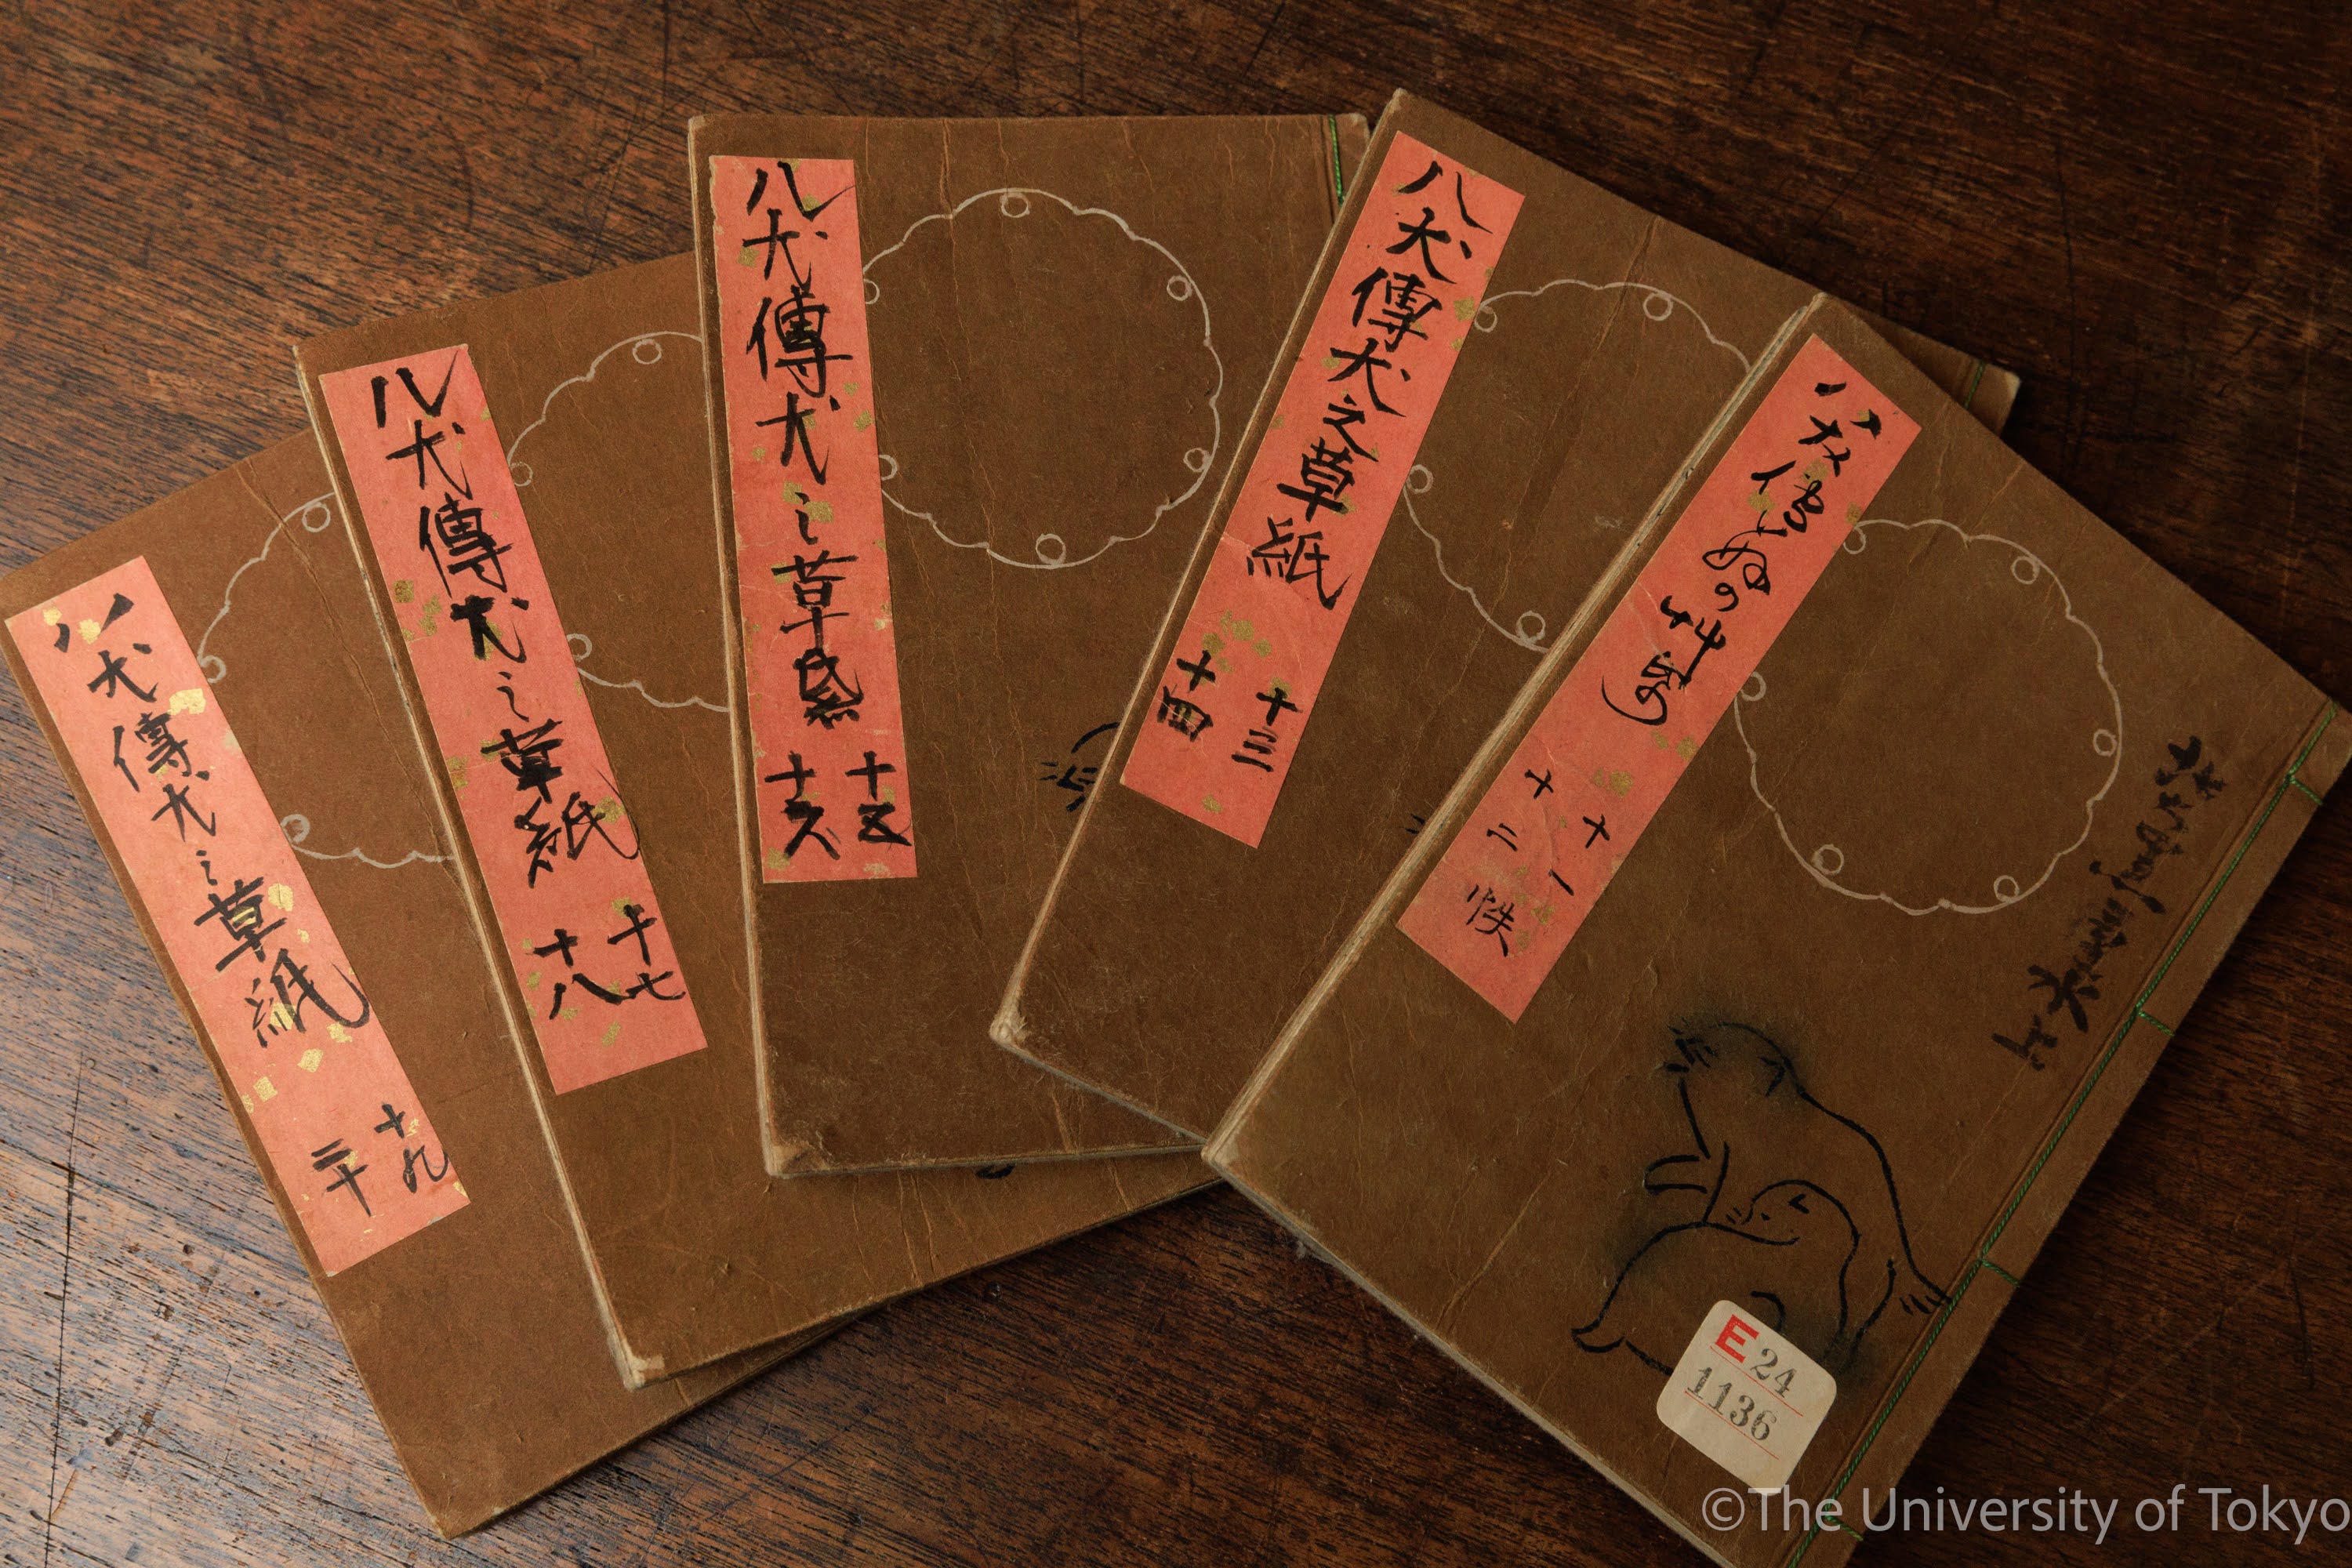 八犬傳犬之草紙
十九
二十
八犬傳犬之草紙
十七
十八
八犬傳犬之草帋
十五
十六
八犬傳犬之草紙
十三
十四
八犬伝いぬの艸帋
十一
十二 帙
E 24
1136
©The University of Tokyo